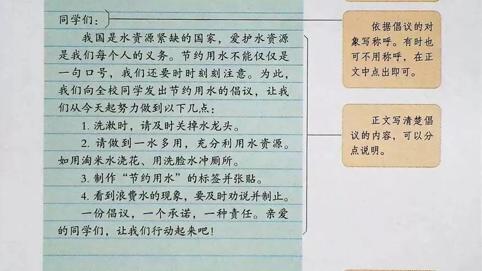 同学们：
我国是水资源紧缺的国家，爱护水资源
是我们每个人的义务。节约用水不能仅仅是
一句口号，我们还要时时刻刻注意。为此，
我们向全校同学发出节约用水的倡议，让我
们从今天起努力做到以下几点：
1. 洗漱时，请及时关掉水龙头。
2. 请做到一水多用，充分利用水资源。
如用淘米水浇花、用洗脸水冲厕所。
3. 制作“节约用水”的标签并张贴。
4. 看到浪费水的现象，要及时劝说并制止。
一份倡议，一个承诺，一种责任。亲爱
的同学们，让我们行动起来吧！
依据倡议的对
象写称呼。有时也
可不用称呼，在正
文中点出即可。
正文写清楚倡
议的内容，可以分
点说明。